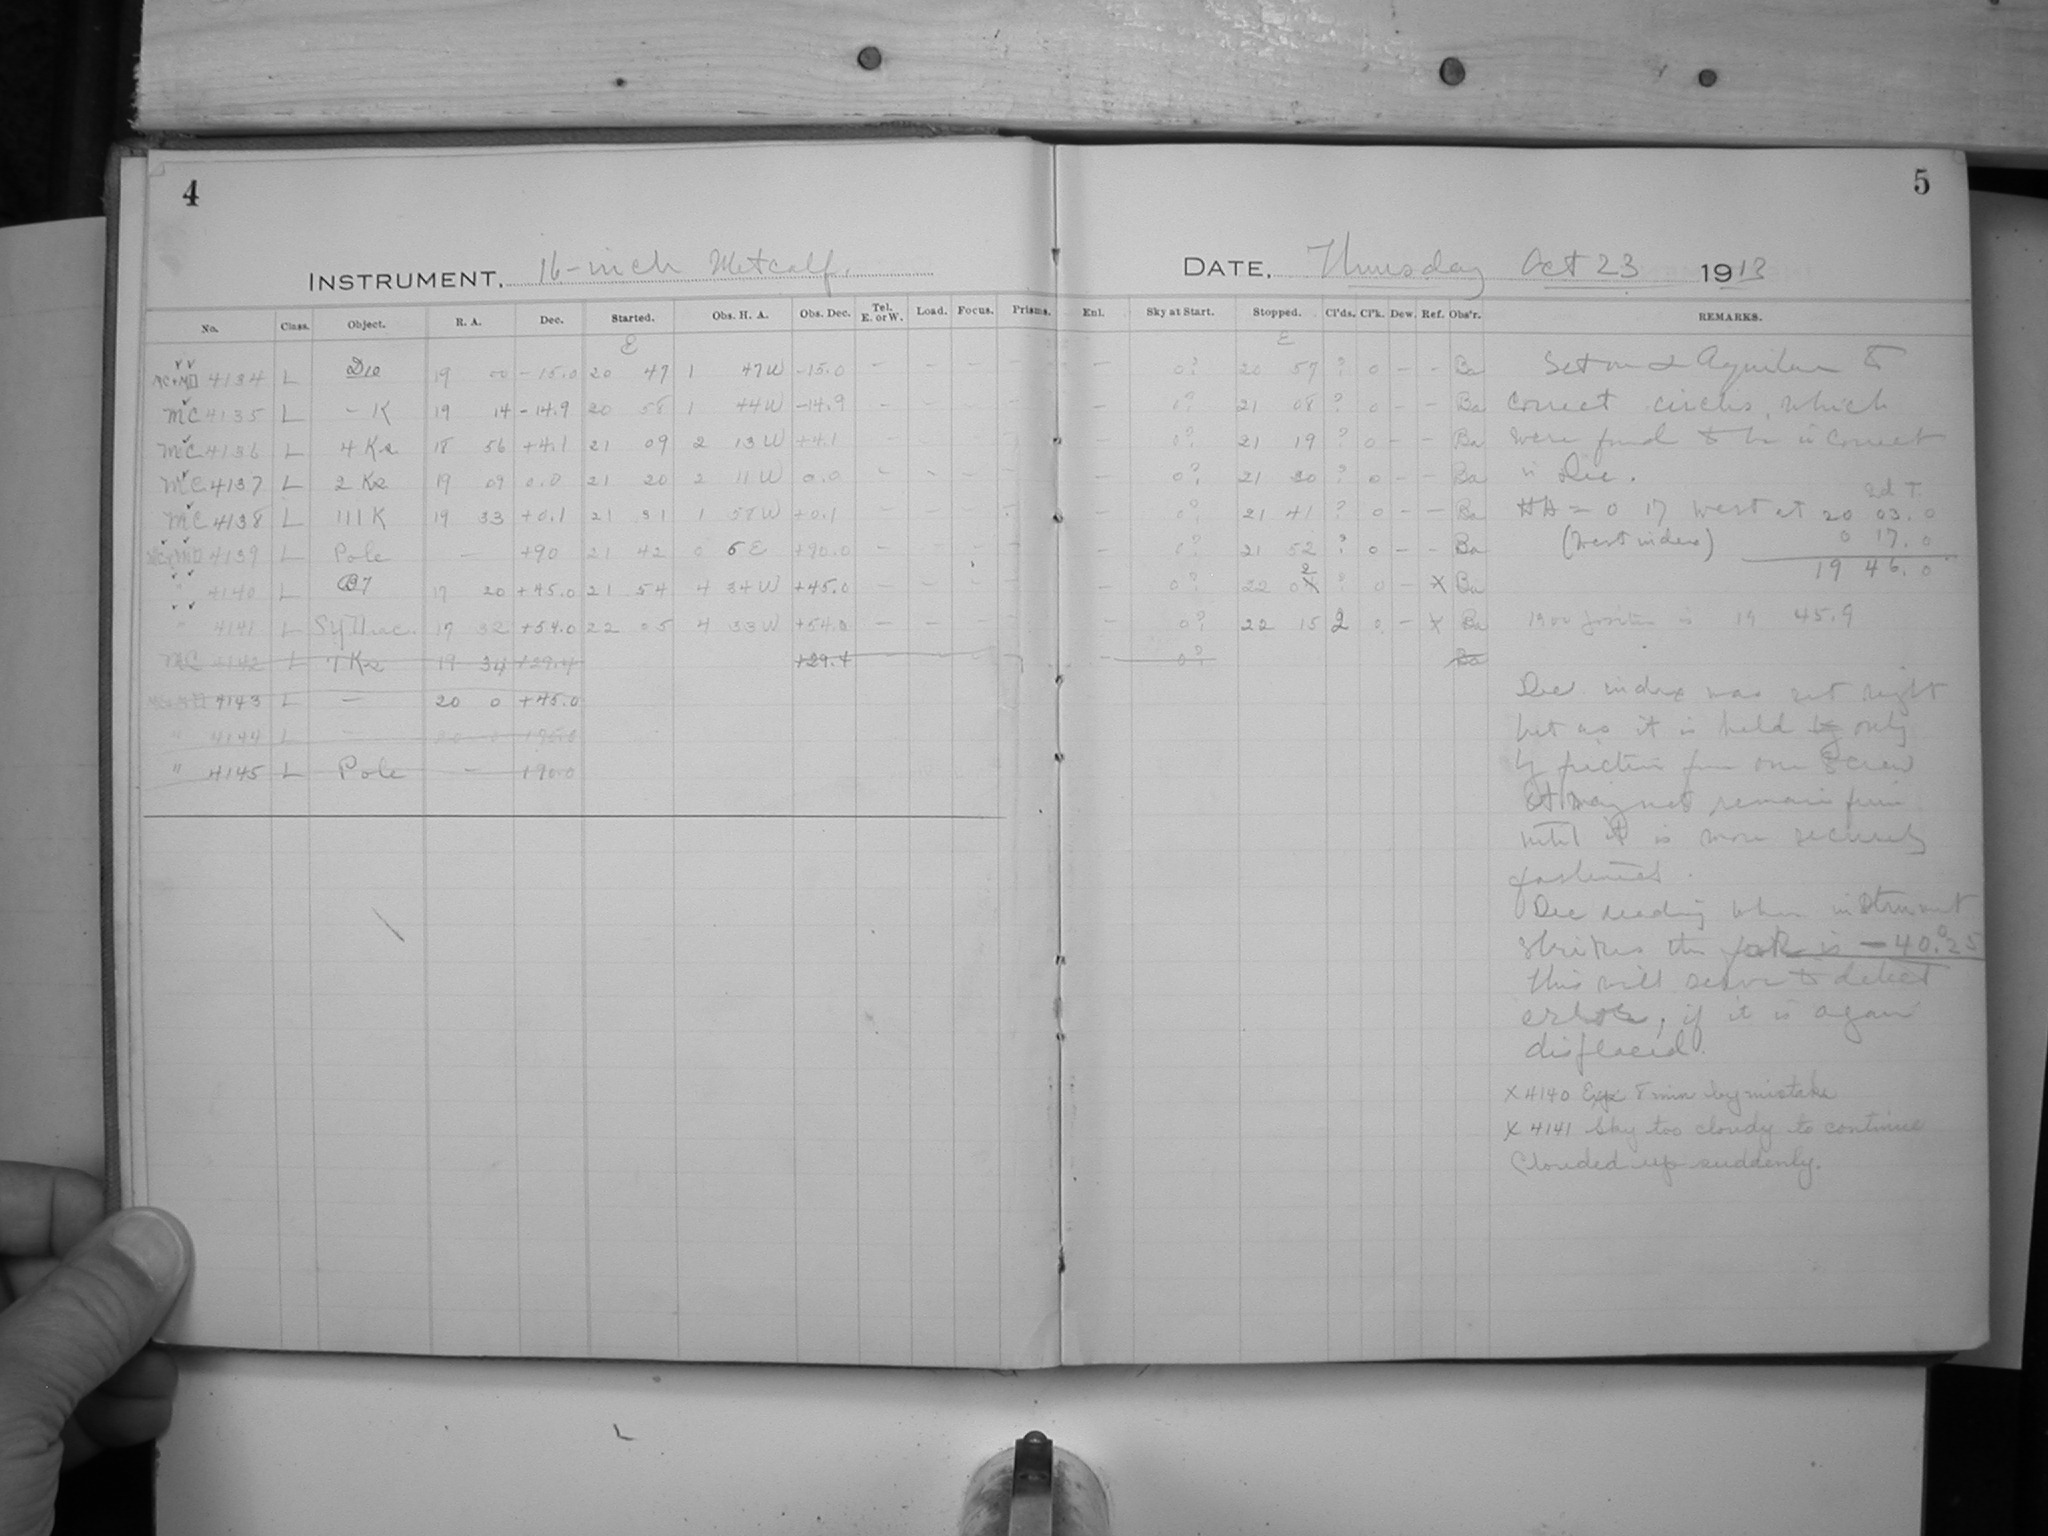 4
INSTRUMENT, 16-inch Metcalf.
No. Class. Object. R. A. Dec. Started. Obs. H. A. Obs. Dec. Tel. E. or W. Load. Focus. Prisms.
E
4134 L Dec 19 00 -15.0 20 47 1 47W -15.0 - - - -
MC 4135 L - K 19 14 -14.9 20 58 1 44W -14.9 - - - -
MC 4136 L 4 K2 18 56 +4.1 21 09 2 13W +4.1 - - - -
MC 4137 L 2 K2 19 09 0.0 21 20 2 11W 0.0 - - - -
MC 4138 L 111 K 19 33 +0.1 21 31 1 58W +0.1 - - - -
4139 L Pole - +90 21 42 0 5E +90.0 - - - -
" 4140 L 17 20 +45.0 21 54 4 34W +45.0 - - - -
" 4141 L 17 32 +54.0 22 05 4 33W +54.0 - - - -
MC 4142 L 7 K2 19 34 +29.4 +29.4
4143 L - 20 0 +45.0
" 4144 L -
" 4145 L Pole - +90.0
5
DATE, Thursday Oct 23 1913
Enl. Sky at Start. Stopped. Cl'ds. Cl'k. Dew. Ref. Obs'r. REMARKS.
E
- 0? 20 57 ? 0 - - Ba
- 0? 21 08 ? 0 - - Ba
- 0? 21 19 ? 0 - - Ba
- 0? 21 30 ? 0 - - Ba
- 0? 21 41 ? 0 - - Ba
- 0? 21 52 ? 0 - - Ba
- 0? 22 02 ? 0 - X Ba
- 0? 22 15 2 0 - X Ba
- 0? Ba
Set on α Aquilae to
correct circles, which
were found to be incorrect
in Dec.
HA = 0 17 West at 20 03.0
(West index) 0 17.0
19 46.0
1900 position is 19 45.9
Dec. index was set right
but as it is held by only
by friction from one screw
it may not remain firm
until it is more securely
fastened.
Dec reading when instrument
strikes the fork is -40°.25
This will serve to detect
errors, if it is again
displaced.
X 4140 Exp 8 min by mistake
X 4141 Sky too cloudy to continue
Clouded up suddenly.